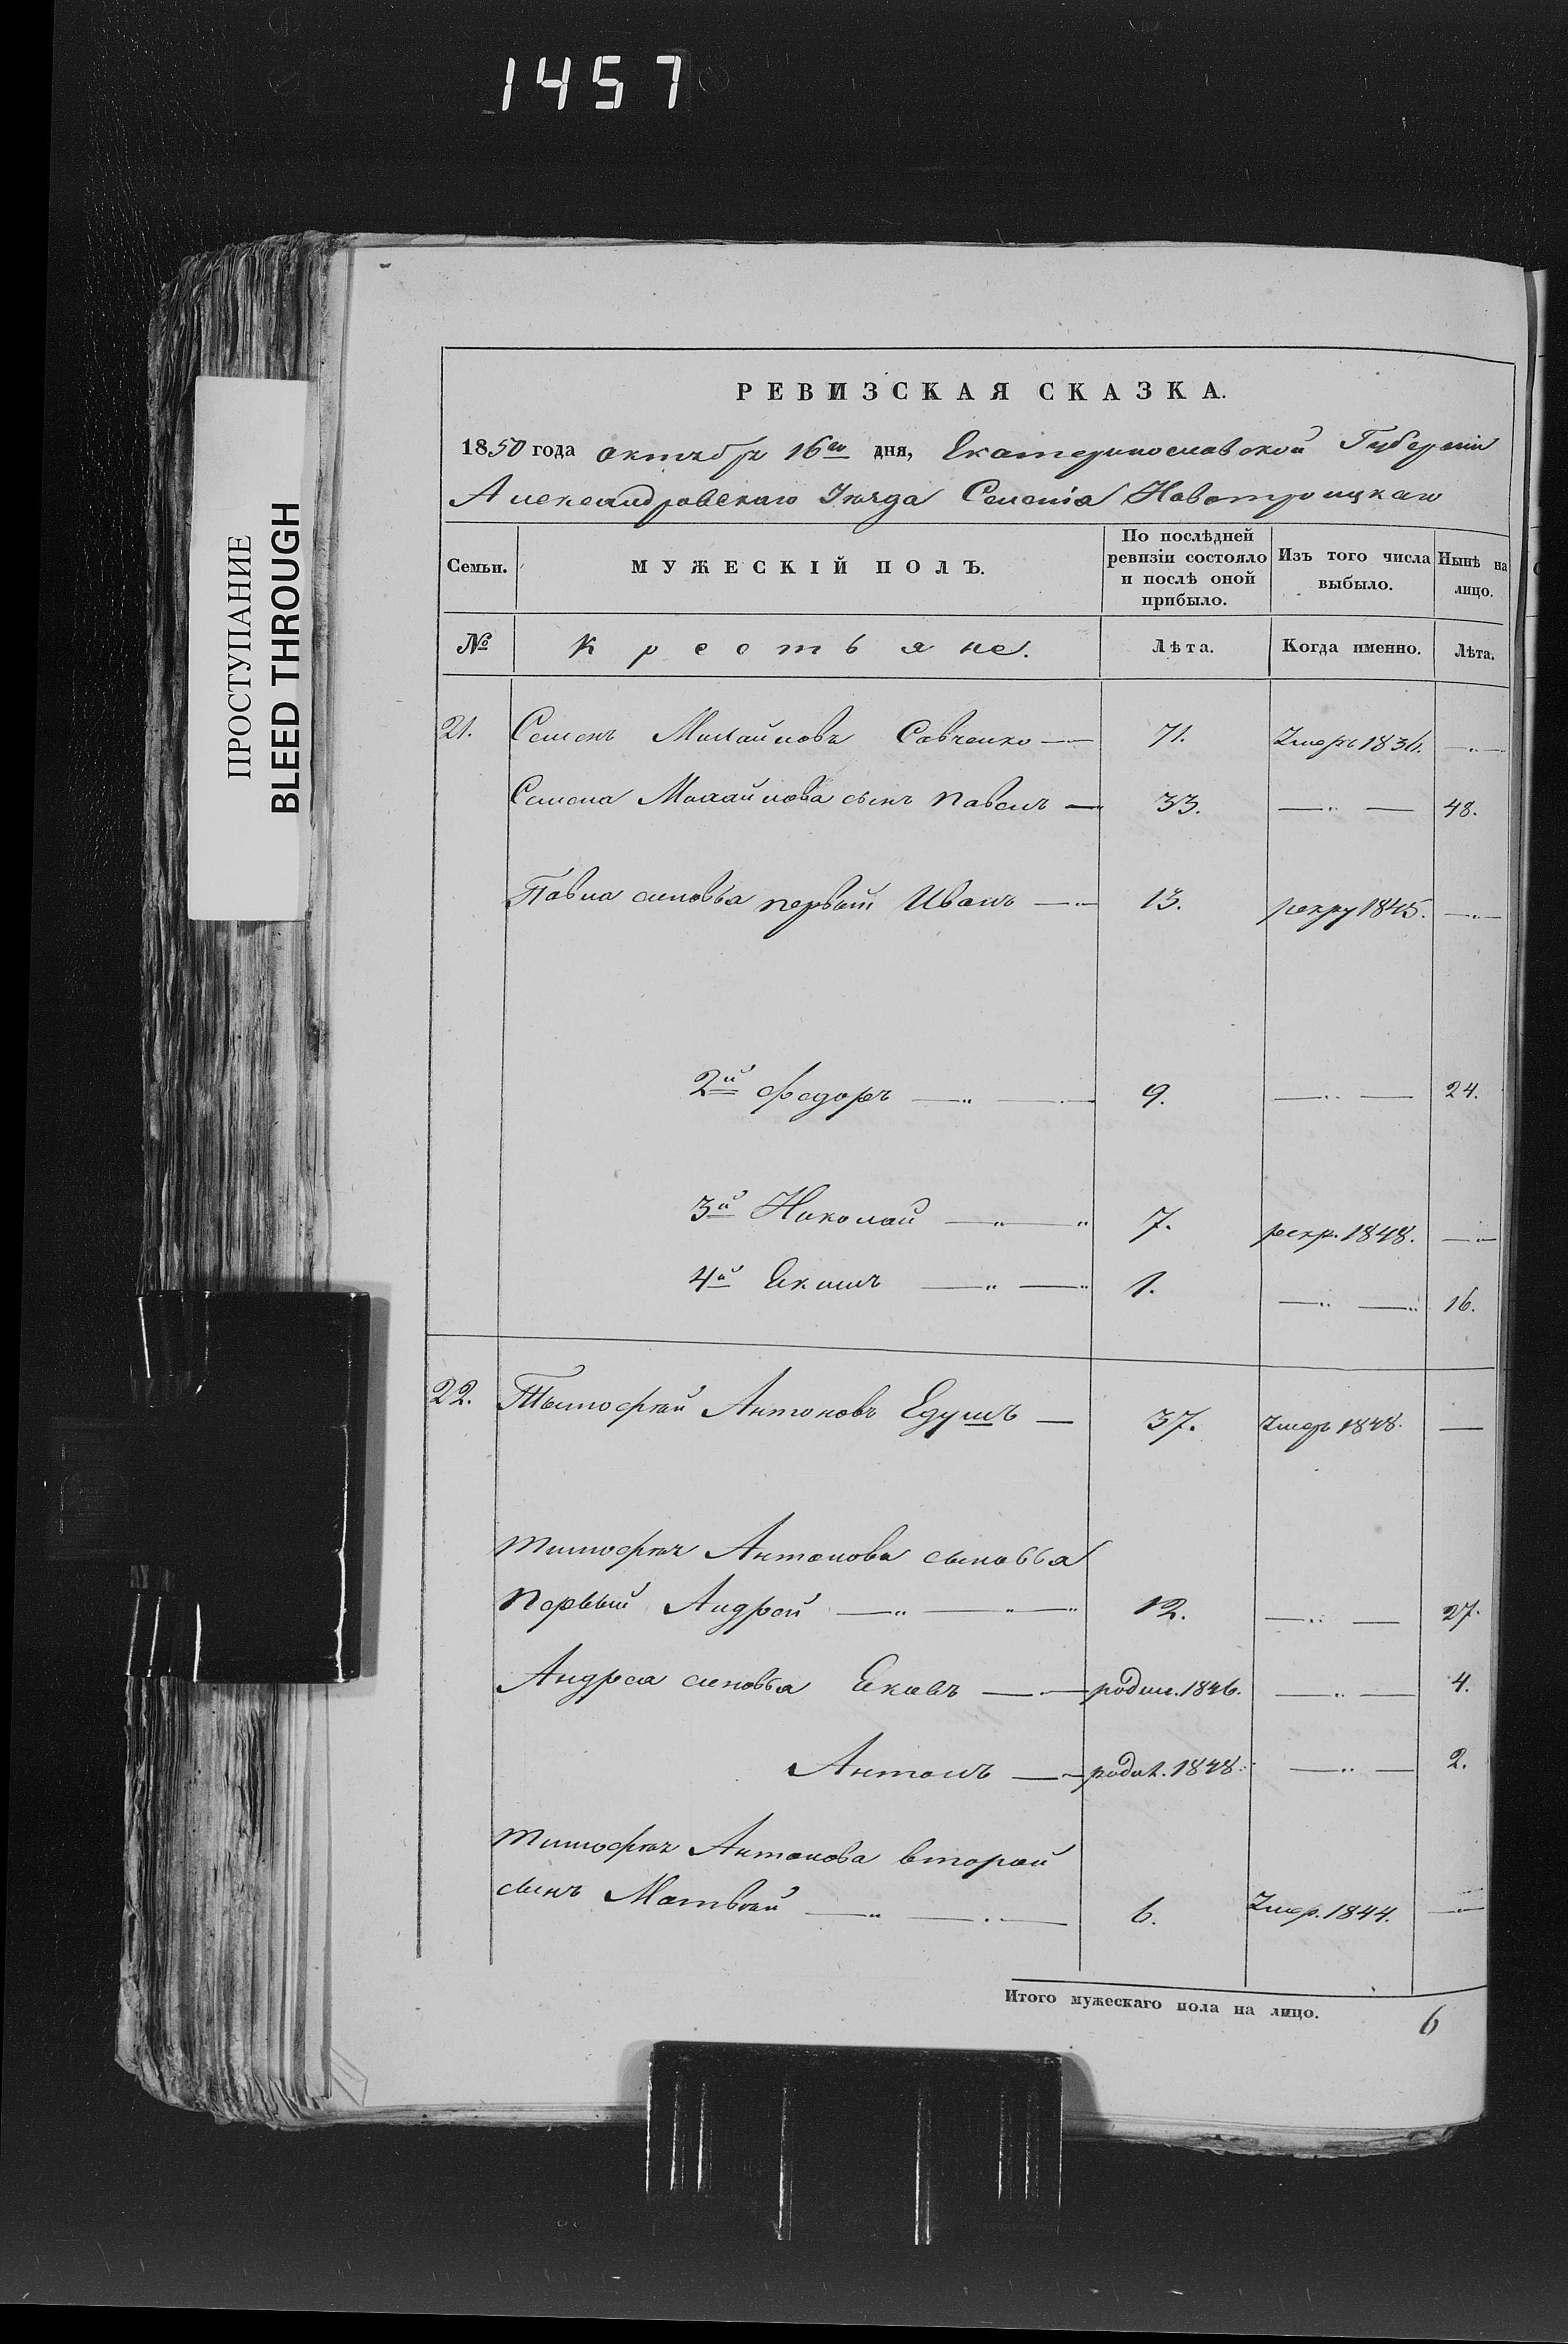 1457
ПРОСТУПАНИЕ
BLEED THROUGH
РЕВИЗСКАЯ СКАЗКА.
1850 года октября 16го дня, Екатеринославской Губернии
Александровскаго Уезда Селенія Новотроицкаго
Семьи. МУЖЕСКІЙ ПОЛЪ. По послѣдней ревизіи состояло и послѣ оной прибыло. Изъ того числа выбыло. Нынѣ на лицо.
№ Крестьяне. Лѣта. Когда именно. Лѣта.
21. Семенъ Михайловъ Савченко — 71. Умеръ 1836. —„—
Семена Михайлова сынъ Павелъ — 33. —„— 48.
Павла сыновья первый Иванъ — 13. рекру 1845. —„—
2й Федоръ —„— 9. —„— 24.
3й Николай —„—„ 7. рекр. 1848. —„—
4й Екимъ —„—„ 1. —„—„ 16.
22. Тымофѣй Антоновъ Едушъ — 37. Умеръ 1848. —
тимофѣя Антонова сыновья
Первый Андрей —„—„—„ 12. —„— 27.
Андрея сыновья Екавъ — родил. 1846. —„— 4.
Антонъ — родил. 1848. —„— 2.
тимофѣя Антонова второй
сынъ Матвѣй —„—.— 6. Умер. 1844. —„—
Итого мужескаго пола на лицо. 6